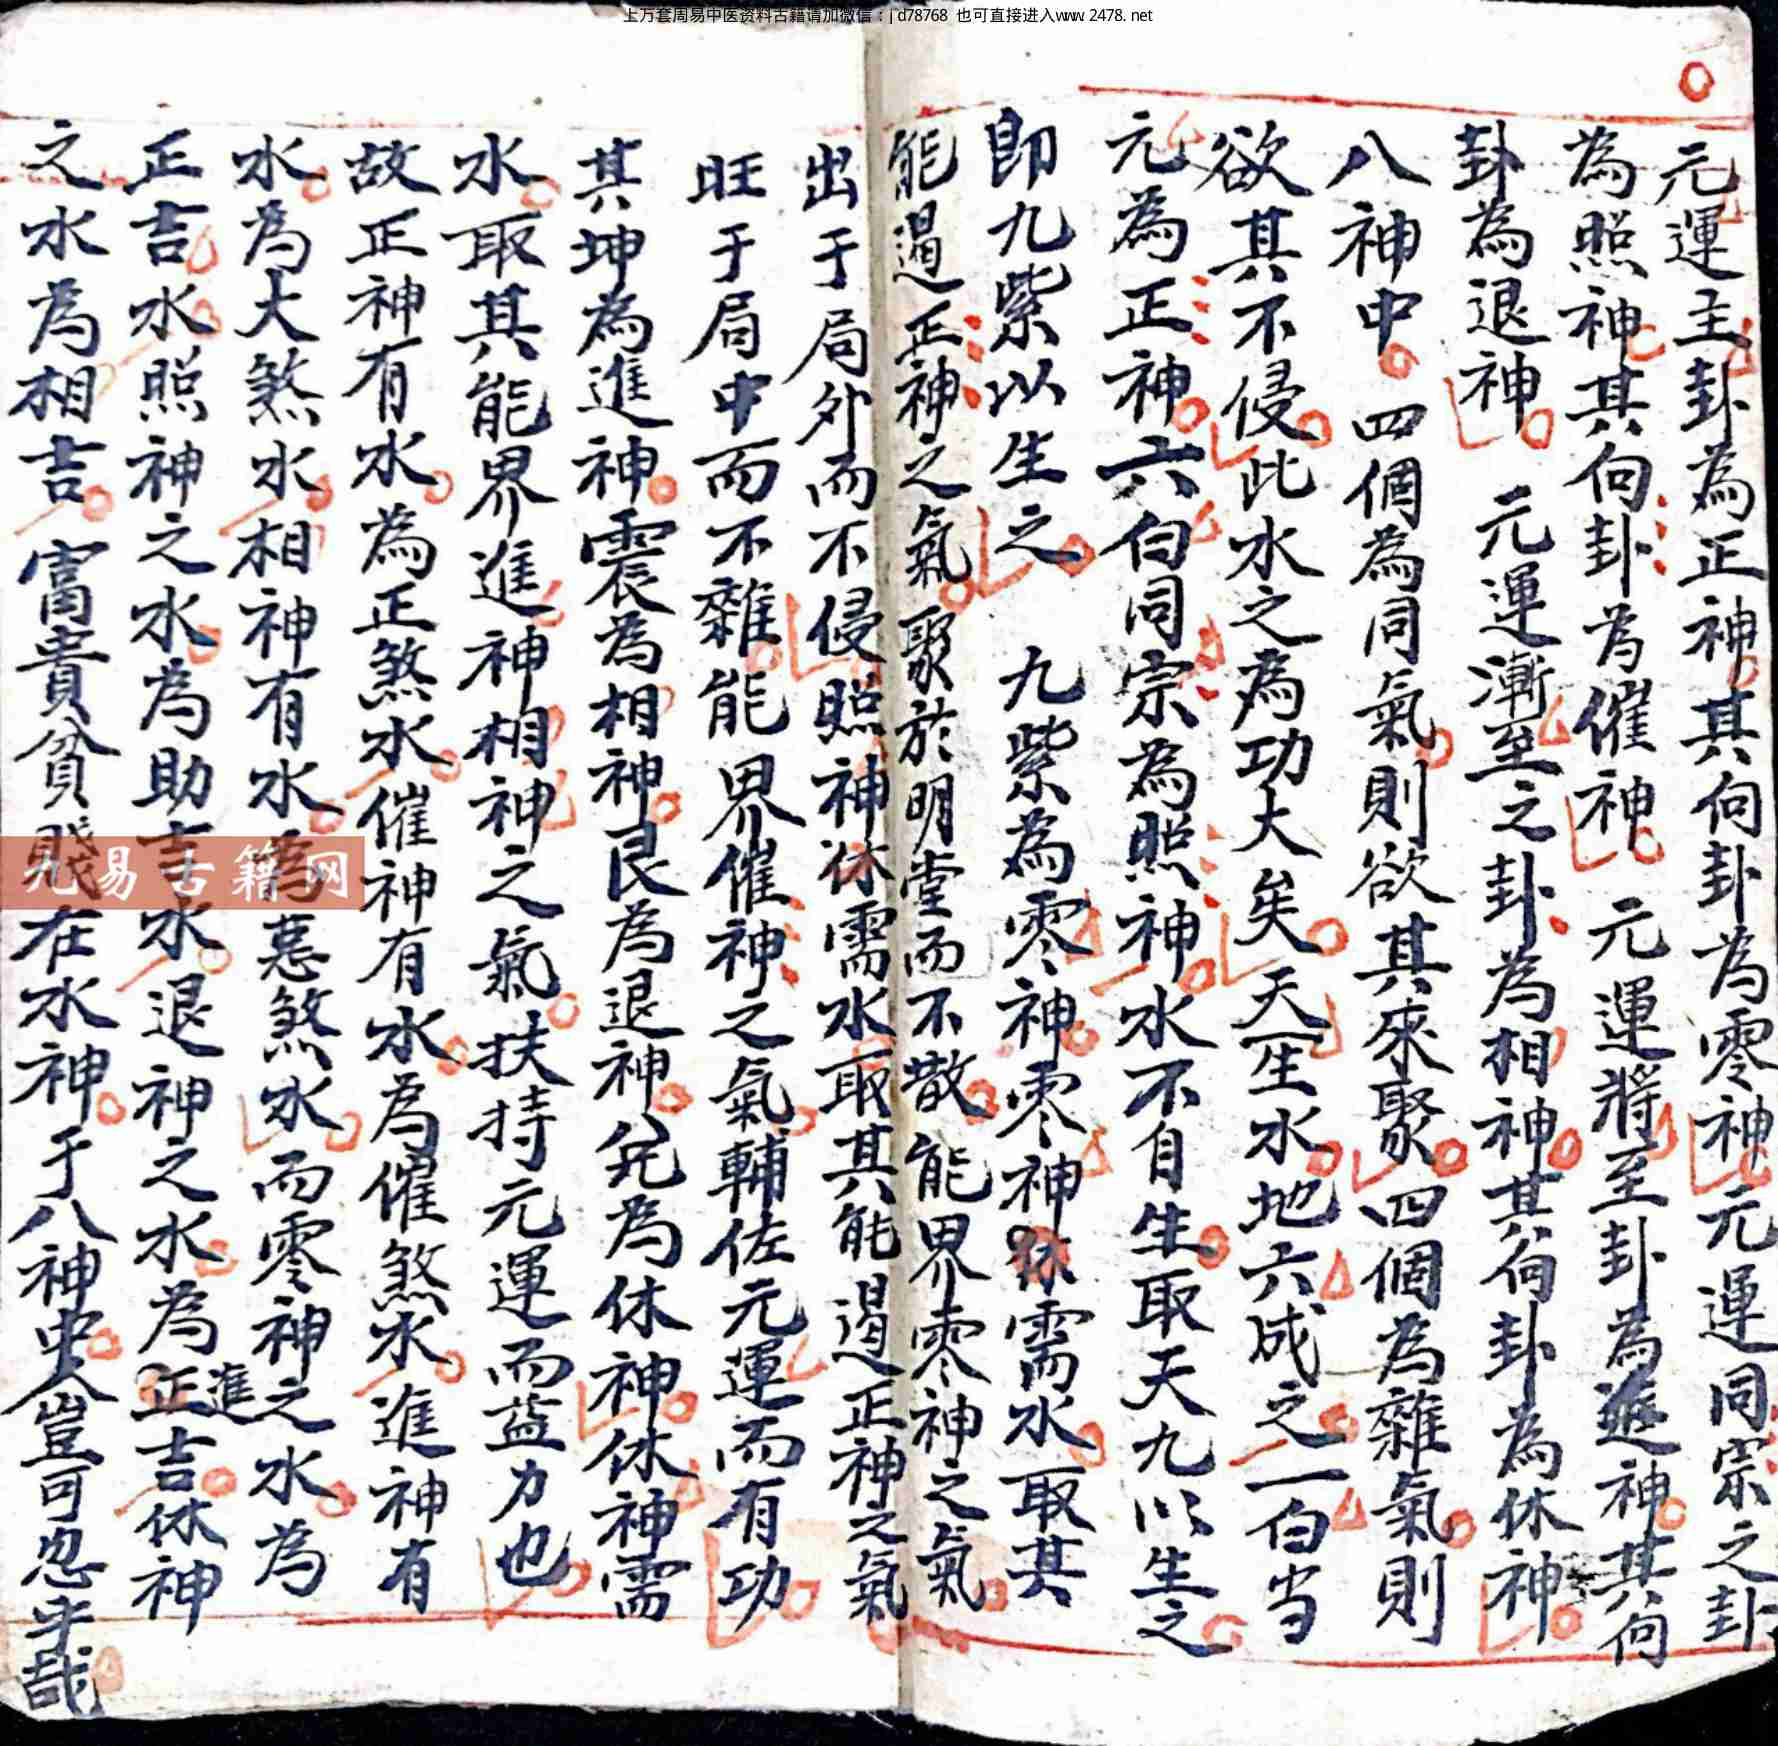 上万套周易中医资料古籍请加微信：jd78768 也可直接进入www.2478.net
元運主卦為正神其向卦為零神元運同宗之卦
為照神其向卦為催神元運將至卦為進神其向
卦為退神元運漸至之卦為相神其向卦為休神
八神中四個為同氣則欲其來聚四個為雜氣則
欲其不侵此水之為功大矣天一生水地六成之一白当
元為正神六白同宗為照神水不自生取天九以生之
即九紫以生之九紫為零神零神休需水取其
能遏正神之氣聚於明堂而不散能界零神之氣
出于局外而不侵照神休需水取其能遏正神之氣
旺于局中而不雜能界催神之氣輔佐元運而有功
其坤為進神震為相神艮為退神兌為休神休神需
水取其能界進神相神之氣扶持元運而益力也
故正神有水為正煞水催神有水為催煞水進神有
水為大煞水相神有水為惡煞水而零神之水為
正吉水照神之水為助吉水退神之水為進正吉休神
之水為相吉富貴貧賤在水神于八神中人豈可忽乎哉
九易古籍网